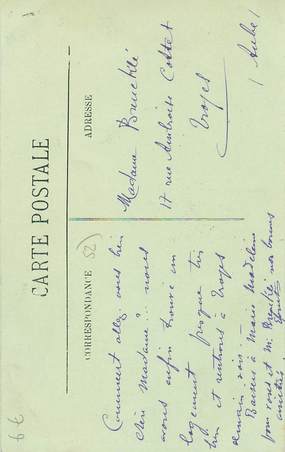 CARTE POSTALE
CORRESPONDANCE
52
Comment allez vous bien
chère Madame ? nous
avons enfin trouvé un
logement presque très
bn et rentrons à Troyes
demain soir.
Baisers à Marie Madeleine
pour vous et M. nos bonnes
amitiés
ADRESSE
Madame
17 rue Ambroise Cottet
Troyes
(Aube)
6 €